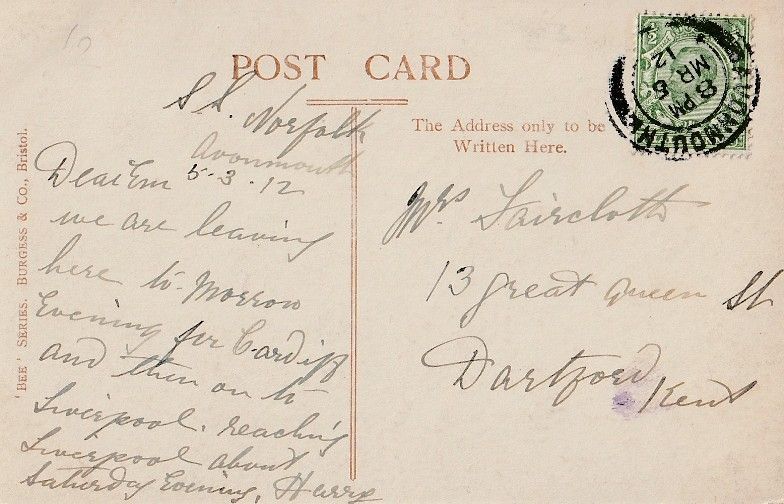 POST CARD
S.S. Norfolk
Avonmouth
5-3-12
Dear Em
we are leaving
here to-morrow
Evening for Cardiff
and then on to
Liverpool. reaching
Liverpool about
Saturday Evening, Harry
The Address only to be
Written Here.
Mrs Faircloth
13 great queen St
Dartford
Kent
'BEE' SERIES. BURGESS & CO., Bristol.
AVONMOUTH
8 PM
MR 5
12
½